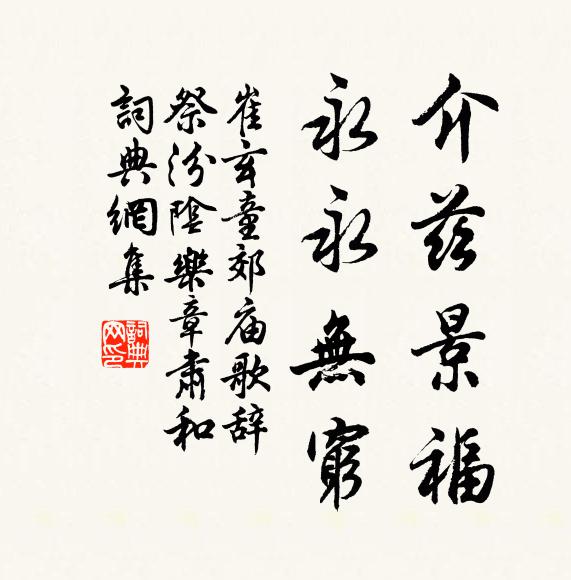 介茲景福
永永無窮
崔玄童郊庙歌辞
祭汾陰樂章肅和
詞典網集
詞典网印